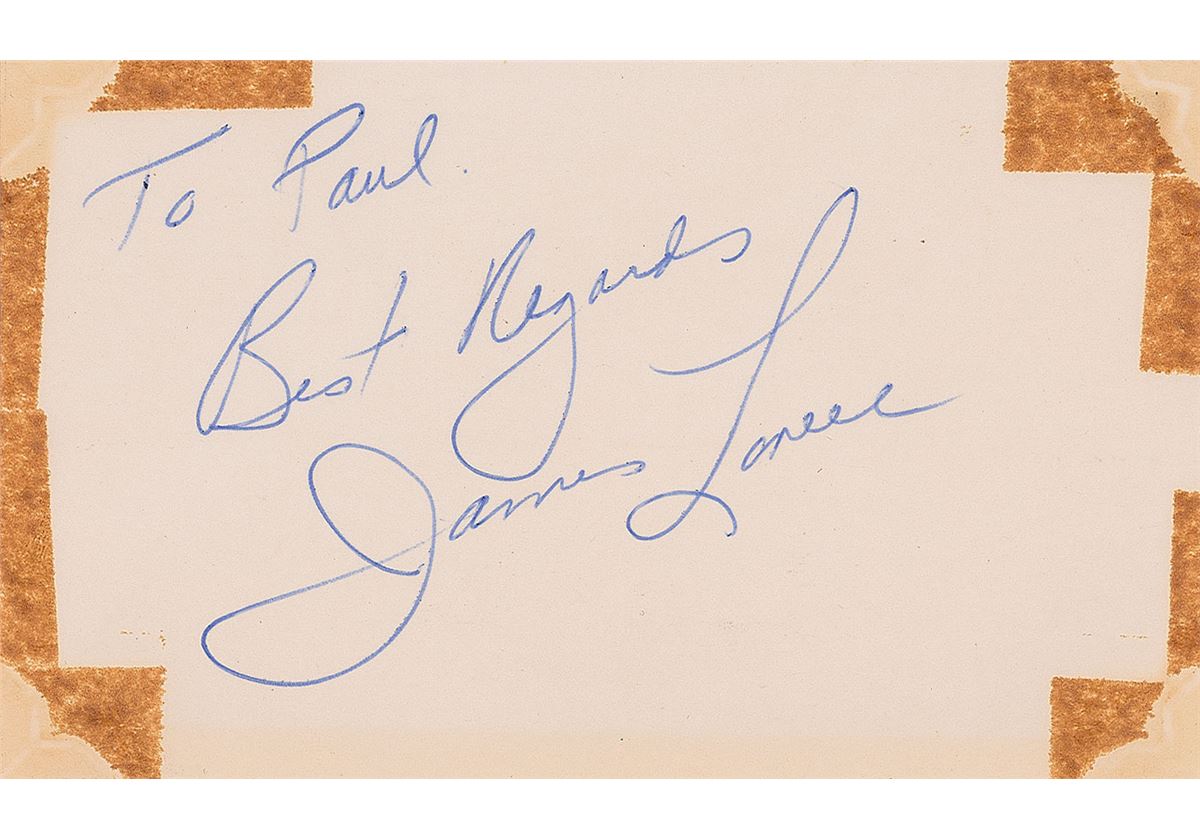 To Paul.
Best Regards
James